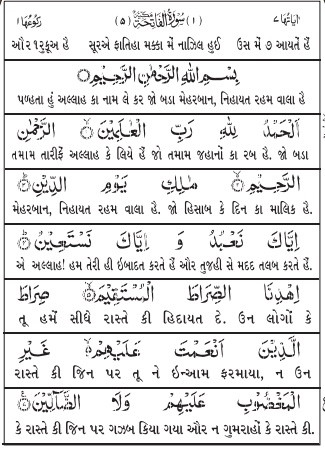 اٰيَاتُهَا ٧ (١) سُوْرَةُ الْفَاتِحَةِ مَكِّيَّةٌ (٥) رُكُوْعُهَا ١
ઔર ૧ રુકૂઅ હૈ સૂરએ ફાતિહા મક્કા મેં નાઝિલ હુઈ ઉસ મેં ૭ આયતેં હૈં
بِسْمِ اللّٰهِ الرَّحْمٰنِ الرَّحِيْمِ
પળહતા હું અલ્લાહ કા નામ લે કર જો બડા મેહરબાન, નિહાયત રહમ વાલા હૈ
اَلْحَمْدُ لِلّٰهِ رَبِّ الْعٰلَمِيْنَ ۝١ الرَّحْمٰنِ
તમામ તારીફેં અલ્લાહ કે લિયે હૈં જો તમામ જહાનોં કા રબ હૈ. જો બડા
الرَّحِيْمِ ۝٢ مٰلِكِ يَوْمِ الدِّيْنِ ۝٣
મેહરબાન, નિહાયત રહમ વાલા હૈ. જો હિસાબ કે દિન કા માલિક હૈ.
اِيَّاكَ نَعْبُدُ وَ اِيَّاكَ نَسْتَعِيْنُ ۝٤
એ અલ્લાહ! હમ તેરી હી ઇબાદત કરતે હૈં ઔર તુજહી સે મદદ તલબ કરતે હૈં.
اِهْدِنَا الصِّرَاطَ الْمُسْتَقِيْمَ ۝٥ صِرَاطَ
તૂ હમેં સીધે રાસ્તે કી હિદાયત દે. ઉન લોગોં કે
الَّذِيْنَ اَنْعَمْتَ عَلَيْهِمْ ۝٦ غَيْرِ
રાસ્તે કી જિન પર તૂ ને ઇન્આમ ફરમાયા, ન ઉન
الْمَغْضُوْبِ عَلَيْهِمْ وَلَا الضَّآلِّيْنَ ۝٧
કે રાસ્તે કી જિન પર ગઝબ કિયા ગયા ઔર ન ગુમરાહોં કે રાસ્તે કી.